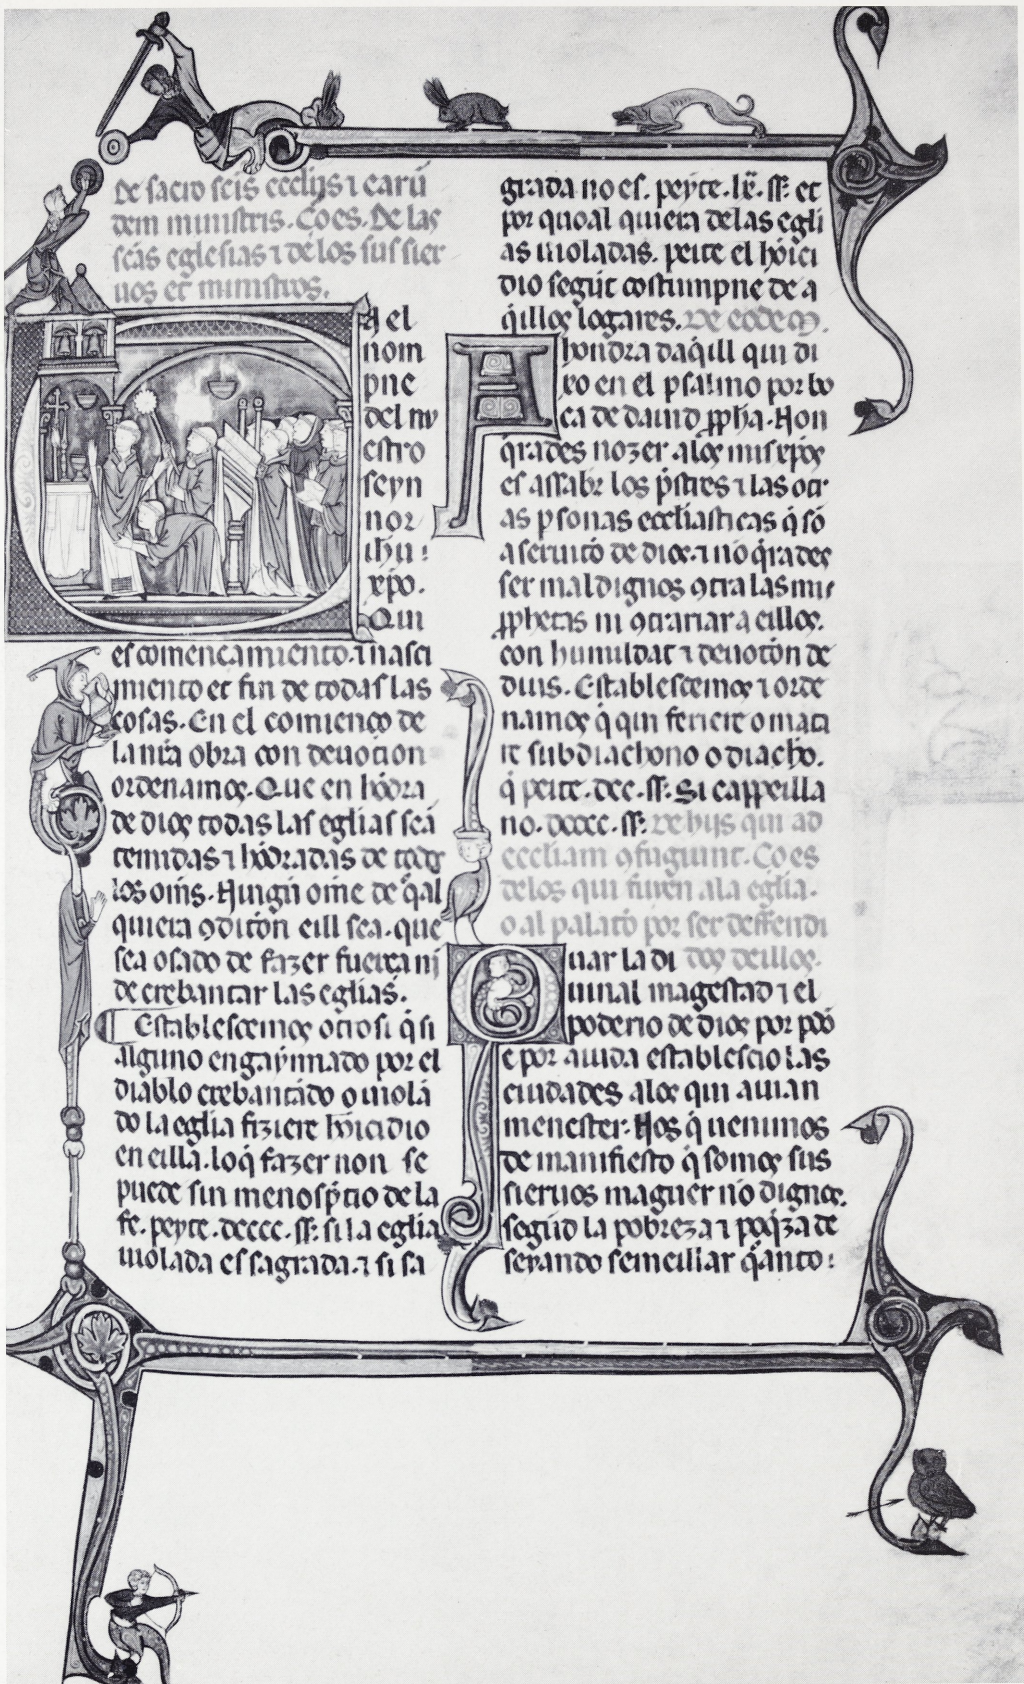 De sacro sc̄is ecclijs ⁊ earū
dem ministris. Co es. De las
sc̄as eglesias ⁊ de los sus sier
uos et ministros.
A el
nom
pne
del nr̄
estro
seyn
nor
ihu :
xp̄o.
Qui
es comencamiento. ⁊ nasci
miento et fin de todas las
cosas. En el comienço de
la nr̄a obra con deuocion
ordenamos. Que en hōdra
de dios todas las eglias seā
tenidas ⁊ hōdradas de todos
los om̄s. Ningū om̄e de q̄al
quiera ꝯditōn eill sea. que
sea osado de fazer fuerça ni
de crebantar las eglias.
¶ Establescemos otrosi q̄ si
alguno engaynnado por el
diablo crebantādo o uiolā
do la eglia fiziere hōicidio
en eilla. lo q̄ fazer non se
puede sin menosp̄cio de la
fe. peyte. dcccc. ss̄. si la eglia
uiolada es sagrada. ⁊ si sa
grada no es. peyte. lx̄. ss̄. et
por quoal quiera delas egli
as uioladas. peite el hōici
dio segūt costumpne de a
q̄illos logares. De eodem.
Hondra daq̄ill qui di
xo en el psalmo por bo
ca de dauid ꝓph̄a. Non
q̄rades nozer alos mis xp̄os
es assab̄r los p̄stres ⁊ las otr
as ꝑsonas eccliasticas q̄ sō
a seruicō de dios. ⁊ no q̄rades
ser maldignos ꝯtra las mis
ꝓphetas ni ꝯtrariar a eillos.
con humildat ⁊ deuotōn de
duis. Establescemos ⁊ orde
namos q̄ qui feriere o mata
re subdiachono o diachō.
q̄ peite. dcc. ss̄. Si cappeilla
no. dcccc. ss̄. De hijs qui ad
eccliam ꝯfugiunt. Co es
delos qui fuyen ala eglia.
o al palatō por ser deffendi
dos deillos.
Guar la di
uinal magestad ⁊ el
poderio de dios por pō
e por aiuda establescio las
ciudades alos qui auian
menester. Nos q̄ uenimos
de manifiesto q̄ somos sus
sieruos maguer no dignos.
segūd la pobreza ⁊ poq̄za de
seyando semeillar q̄anto :